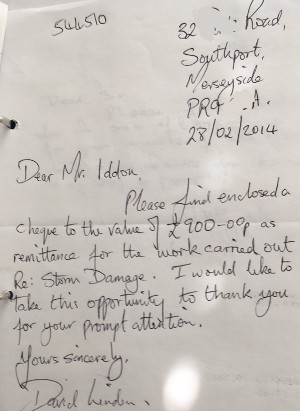 544510
32 Road,
Southport,
Merseyside
PR9 A.
28/02/2014
Dear Mr. Iddon,
Please find enclosed a
cheque to the value of £900-00p as
remittance for the work carried out
Re: Storm Damage. I would like to
take this opportunity to thank you
for your prompt attention.
Yours sincerely,
David Linden.